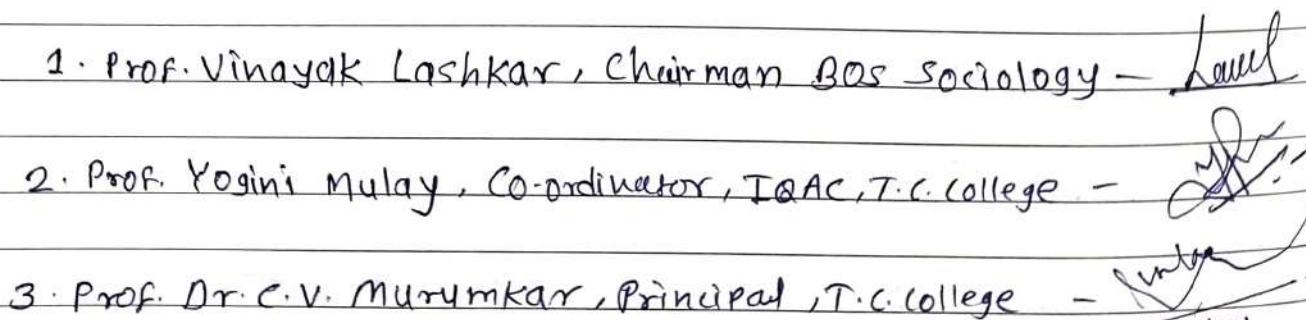 1. Prof. Vinayak Lashkar, Chairman BOS Sociology -
2. Prof. Yogini Mulay, Co-ordinator, IQAC, T.C. College -
3. Prof. Dr. C.V. Murumkar, Principal, T.C. College -